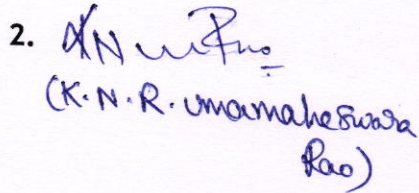 2.
(K. N. R. Umamaheswara
Rao)